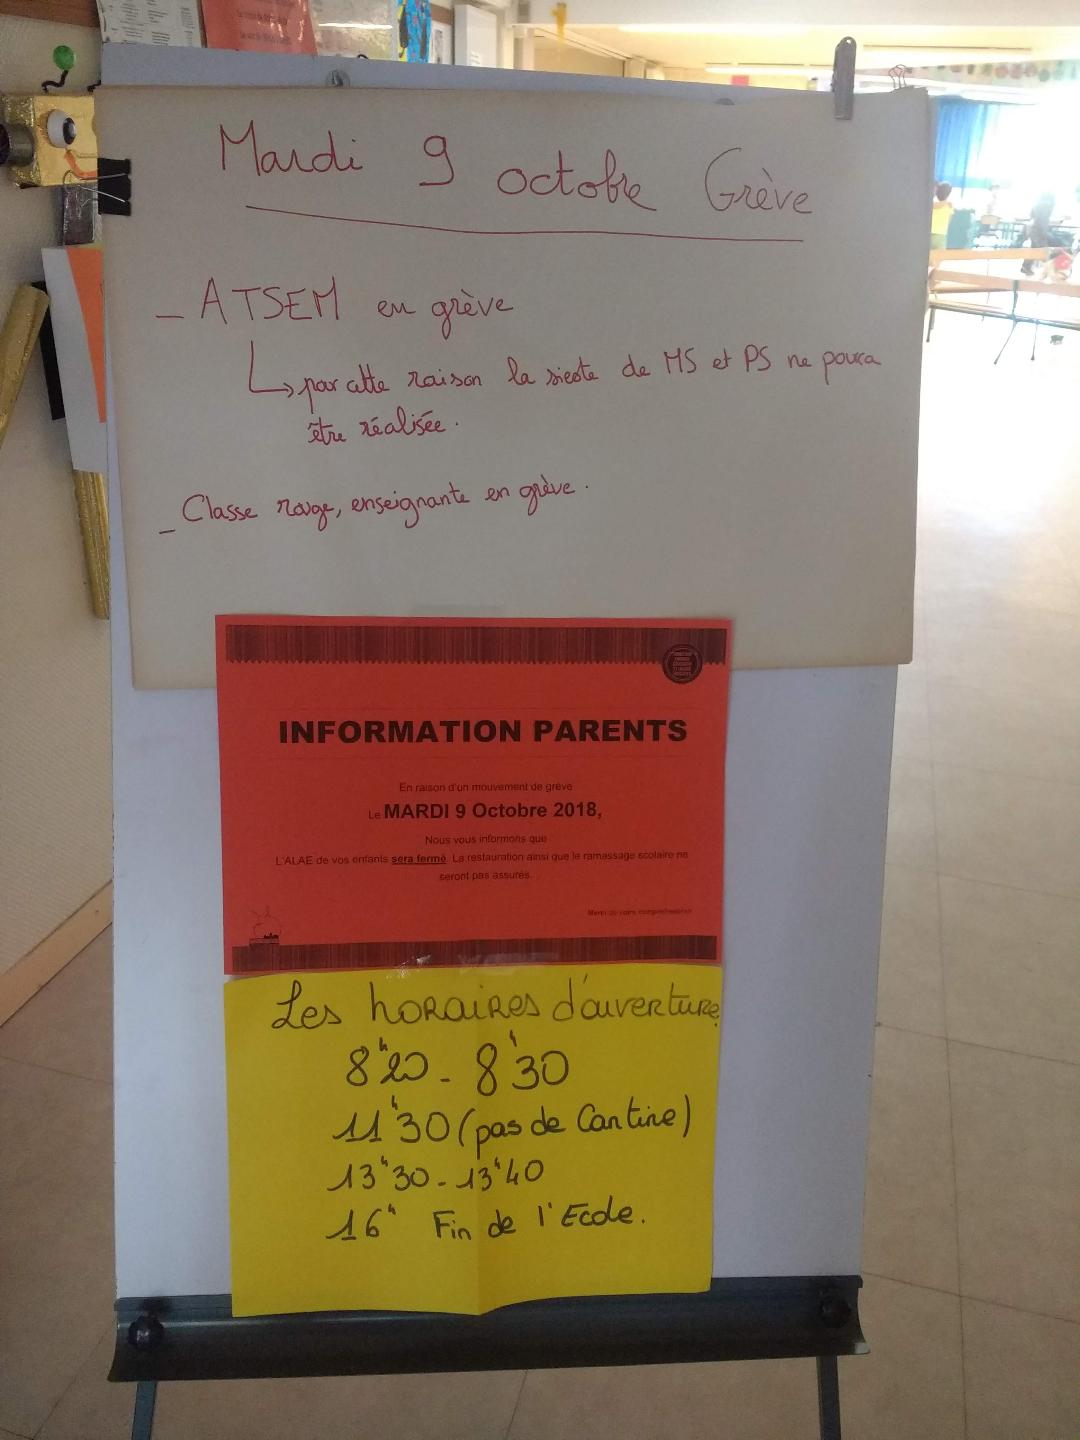 Mardi 9 octobre Grève
_ ATSEM en grève
↳ par cette raison la sieste de MS et PS ne poura
être réalisée.
_ Classe rouge, enseignante en grève.
INFORMATION PARENTS
En raison d'un mouvement de grève
Le MARDI 9 Octobre 2018,
Nous vous informons que
L'ALAE de vos enfants sera fermé. La restauration ainsi que le ramassage scolaire ne
seront pas assurés.
Merci de votre compréhension
Les horaires d'ouverture
8h20 - 8h30
11h30 (pas de Cantine)
13h30 - 13h40
16h Fin de l'Ecole.